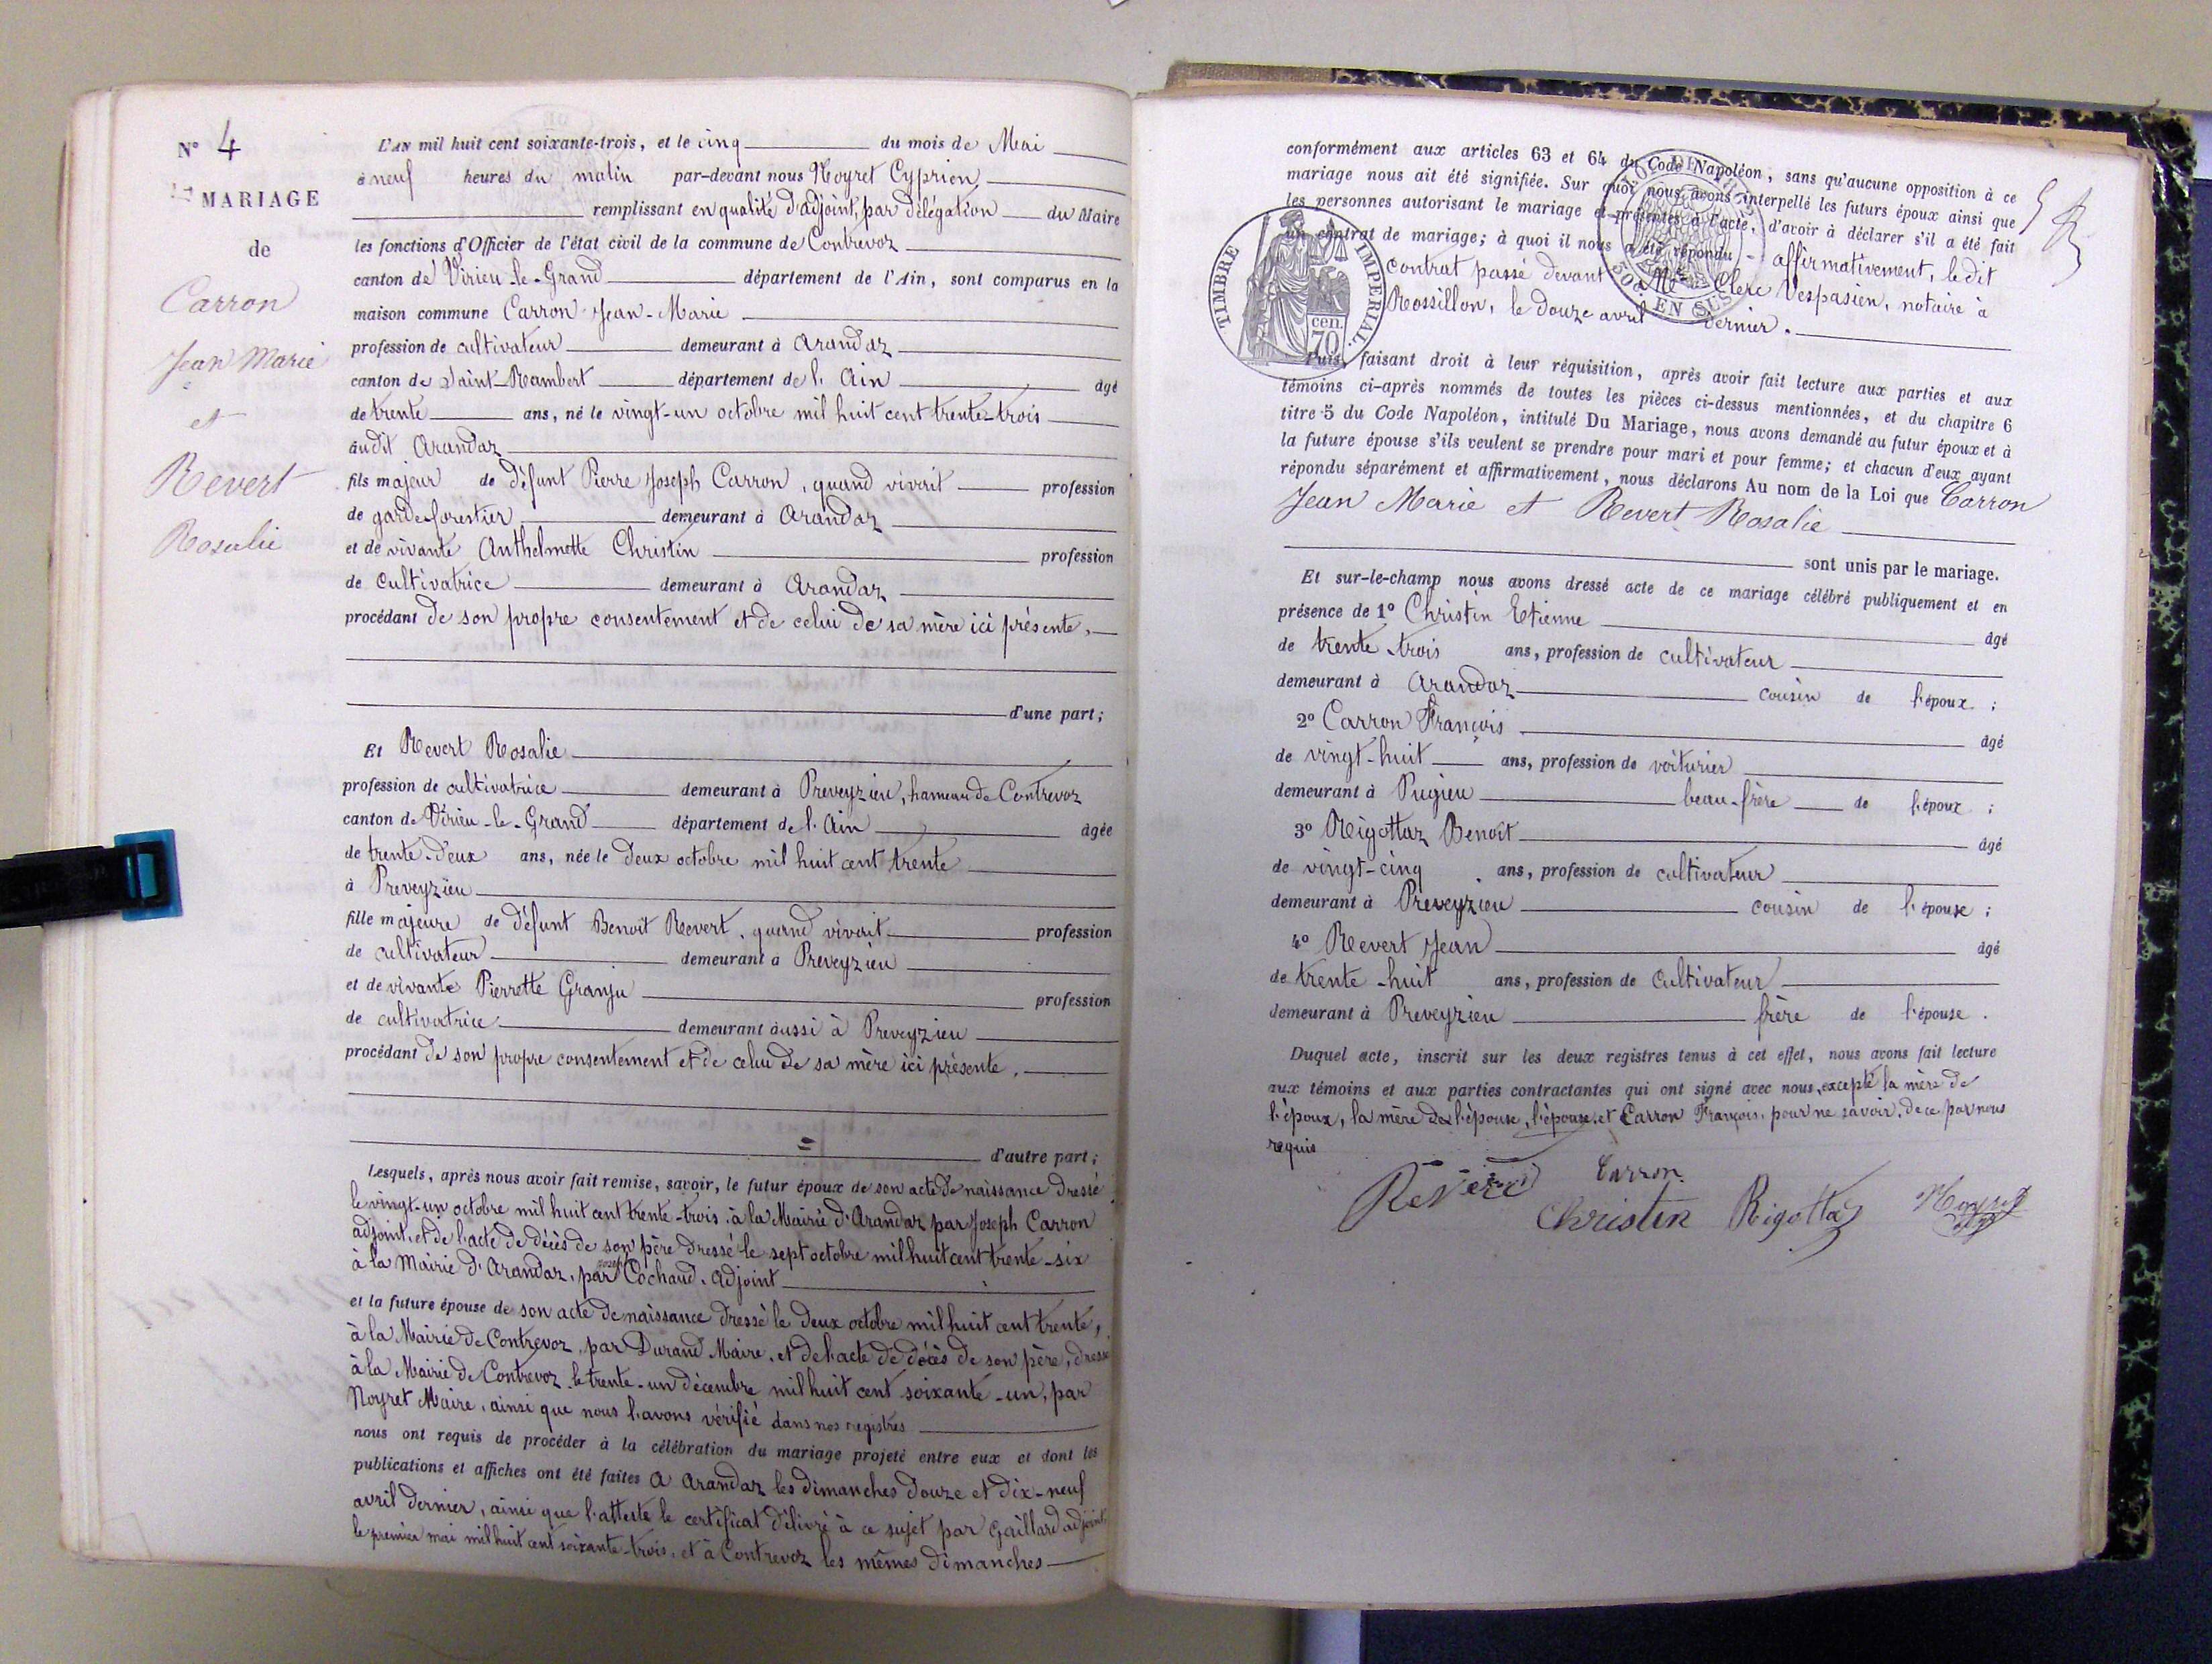 N° 4
MARIAGE
de
Carron
Jean Marie
et
Revert
Rosalie
L'AN mil huit cent soixante-trois, et le cinq du mois de Mai
à neuf heures du matin par-devant nous Noyret Cyprien
remplissant en qualité d'adjoint, par délégation du Maire
les fonctions d'Officier de l'état civil de la commune de Contrevoz
canton de Virieu-le-Grand département de l'Ain, sont comparus en la
maison commune Carron Jean-Marie
profession de cultivateur demeurant à Arandaz
canton de Saint-Rambert département de l'Ain âgé
de trente ans, né le vingt-un octobre mil huit cent trente-trois
audit Arandaz
fils majeur de défunt Pierre Joseph Carron, quand vivait profession
de garde-forestier demeurant à Arandaz
et de vivante Anthelmette Christin profession
de cultivatrice demeurant à Arandaz
procédant de son propre consentement et de celui de sa mère ici présente,
d'une part;
Et Revert Rosalie
profession de cultivatrice demeurant à Preveyzieu, hameau de Contrevoz
canton de Virieu-le-Grand département de l'Ain âgée
de trente-deux ans, née le deux octobre mil huit cent trente
à Preveyzieu
fille majeure de défunt Benoît Revert, quand vivait profession
de cultivateur demeurant à Preveyzieu
et de vivante Pierrette Granju profession
de cultivatrice demeurant aussi à Preveyzieu
procédant de son propre consentement et de celui de sa mère ici présente,
=
d'autre part;
Lesquels, après nous avoir fait remise, savoir, le futur époux de son acte de naissance dressé
le vingt-un octobre mil huit cent trente-trois, à la Mairie d'Arandaz par Joseph Carron
adjoint, et de l'acte de décès de son père dressé le sept octobre mil huit cent trente-six
à la Mairie d'Arandaz, par Joseph Cochaud, adjoint
et la future épouse de son acte de naissance dressé le deux octobre mil huit cent trente,
à la Mairie de Contrevoz, par Durand Maire, et de l'acte de décès de son père, dressé
à la Mairie de Contrevoz le trente-un décembre mil huit cent soixante-un, par
Noyret Maire, ainsi que nous l'avons vérifié dans nos registres
nous ont requis de procéder à la célébration du mariage projeté entre eux et dont les
publications et affiches ont été faites à Arandaz les dimanches douze et dix-neuf
avril dernier, ainsi que l'atteste le certificat délivré à ce sujet par Gaillard adjoint
le premier mai mil huit cent soixante-trois, et à Contrevoz les mêmes dimanches
conformément aux articles 63 et 64 du Code Napoléon, sans qu'aucune opposition à ce
mariage nous ait été signifiée. Sur quoi nous avons interpellé les futurs époux ainsi que
les personnes autorisant le mariage et présentes à l'acte, d'avoir à déclarer s'il a été fait
un contrat de mariage; à quoi il nous a été répondu affirmativement, le dit
contrat passé devant Me Clerc Vespasien, notaire à
Rossillon, le douze avril dernier.
TIMBRE IMPÉRIAL.
cen.
70
50P. EN SUS
Puis, faisant droit à leur réquisition, après avoir fait lecture aux parties et aux
témoins ci-après nommés de toutes les pièces ci-dessus mentionnées, et du chapitre 6
titre 5 du Code Napoléon, intitulé Du Mariage, nous avons demandé au futur époux et à
la future épouse s'ils veulent se prendre pour mari et pour femme; et chacun d'eux ayant
répondu séparément et affirmativement, nous déclarons Au nom de la Loi que Carron
Jean Marie et Revert Rosalie
sont unis par le mariage.
Et sur-le-champ nous avons dressé acte de ce mariage célébré publiquement et en
présence de 1° Christin Etienne âgé
de trente-trois ans, profession de cultivateur
demeurant à Arandaz cousin de l'époux;
2° Carron François âgé
de vingt-huit ans, profession de voiturier
demeurant à Pugieu beau-frère de l'époux;
3° Rigottaz Benoît âgé
de vingt-cinq ans, profession de cultivateur
demeurant à Preveyzieu cousin de l'épouse;
4° Revert Jean âgé
de trente-huit ans, profession de cultivateur
demeurant à Preveyzieu frère de l'épouse.
Duquel acte, inscrit sur les deux registres tenus à cet effet, nous avons fait lecture
aux témoins et aux parties contractantes qui ont signé avec nous, excepté la mère de
l'époux, la mère de l'épouse, l'épouse, et Carron François, pour ne savoir, de ce par nous
requis
Carron
Christin Rigottaz Noyret